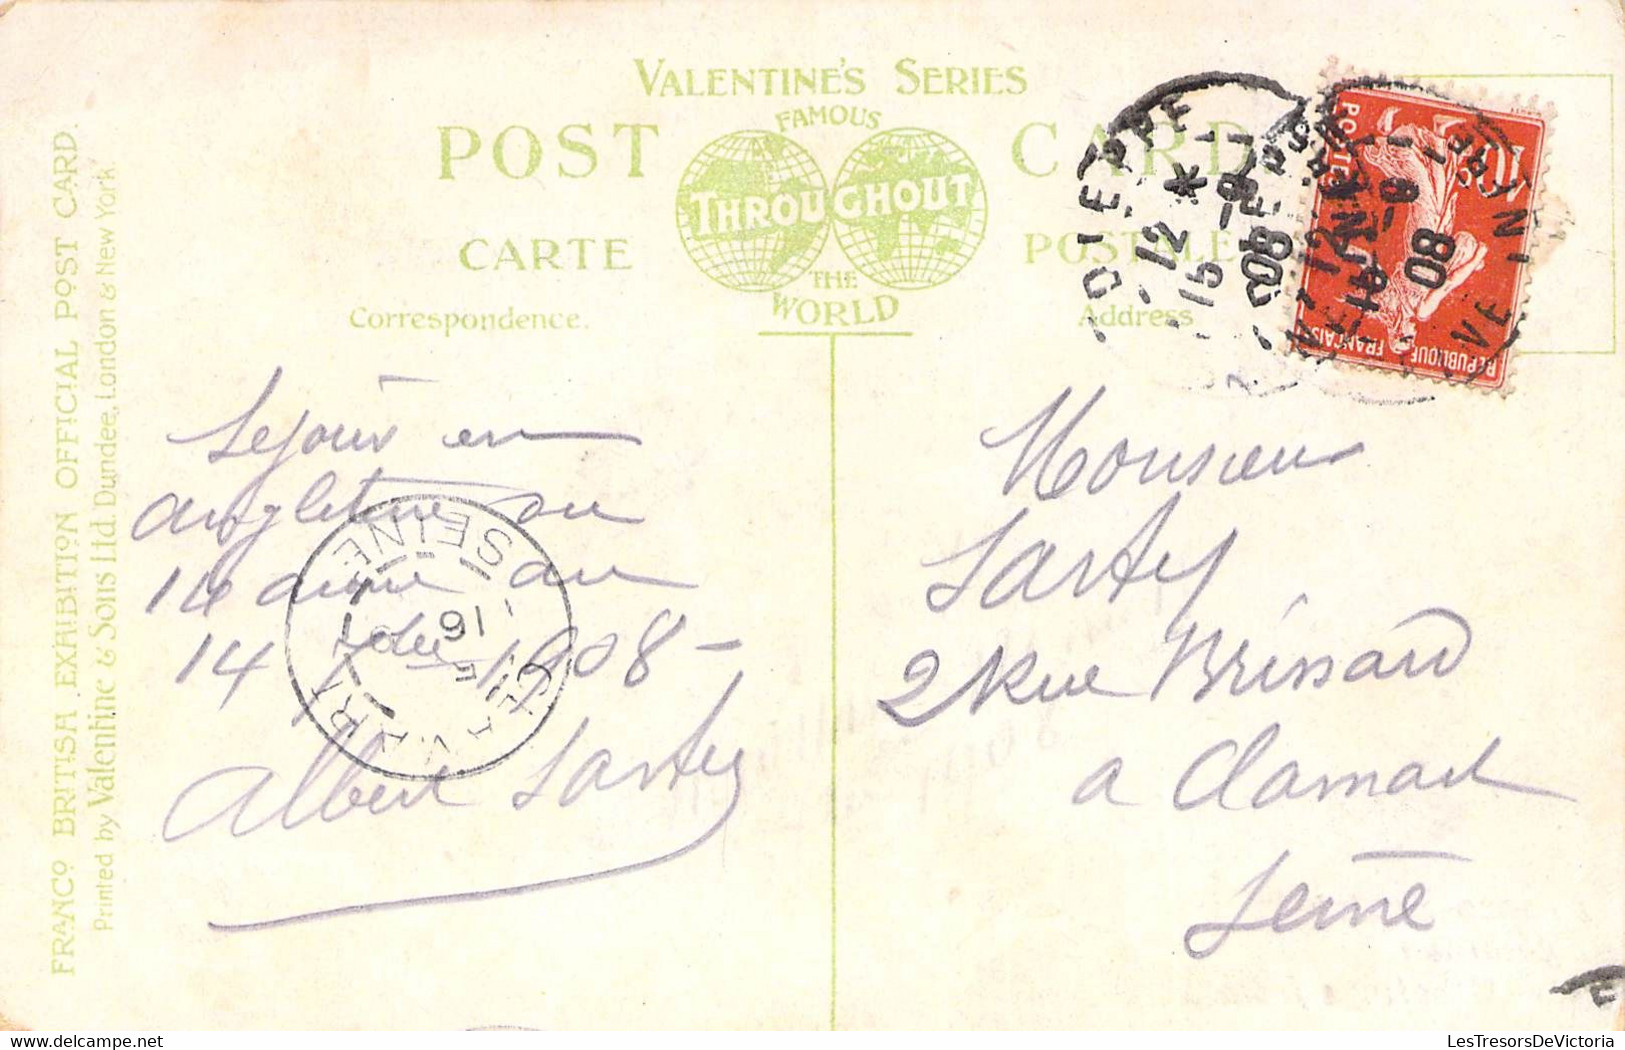 VALENTINE'S SERIES
FAMOUS
POST CARD
THROUGHOUT
CARTE POSTALE
THE
WORLD
Correspondence.
Address
FRANCO BRITISH EXHIBITION OFFICIAL POST CARD.
Printed by Valentine & Sons Ltd. Dundee, London & New York
Séjour en
angleterre du
au
14 7bre 1908 -
Albert Sarty
Monsieur
Sarty
2 Rue Brissard
a Clamart
Seine
DIEPPE
12 *
15 - 9
08
POSTES
10c
REPUBLIQUE
FRANCAISE
08
CLAMART
16
SEINE
LesTresorsDeVictoria